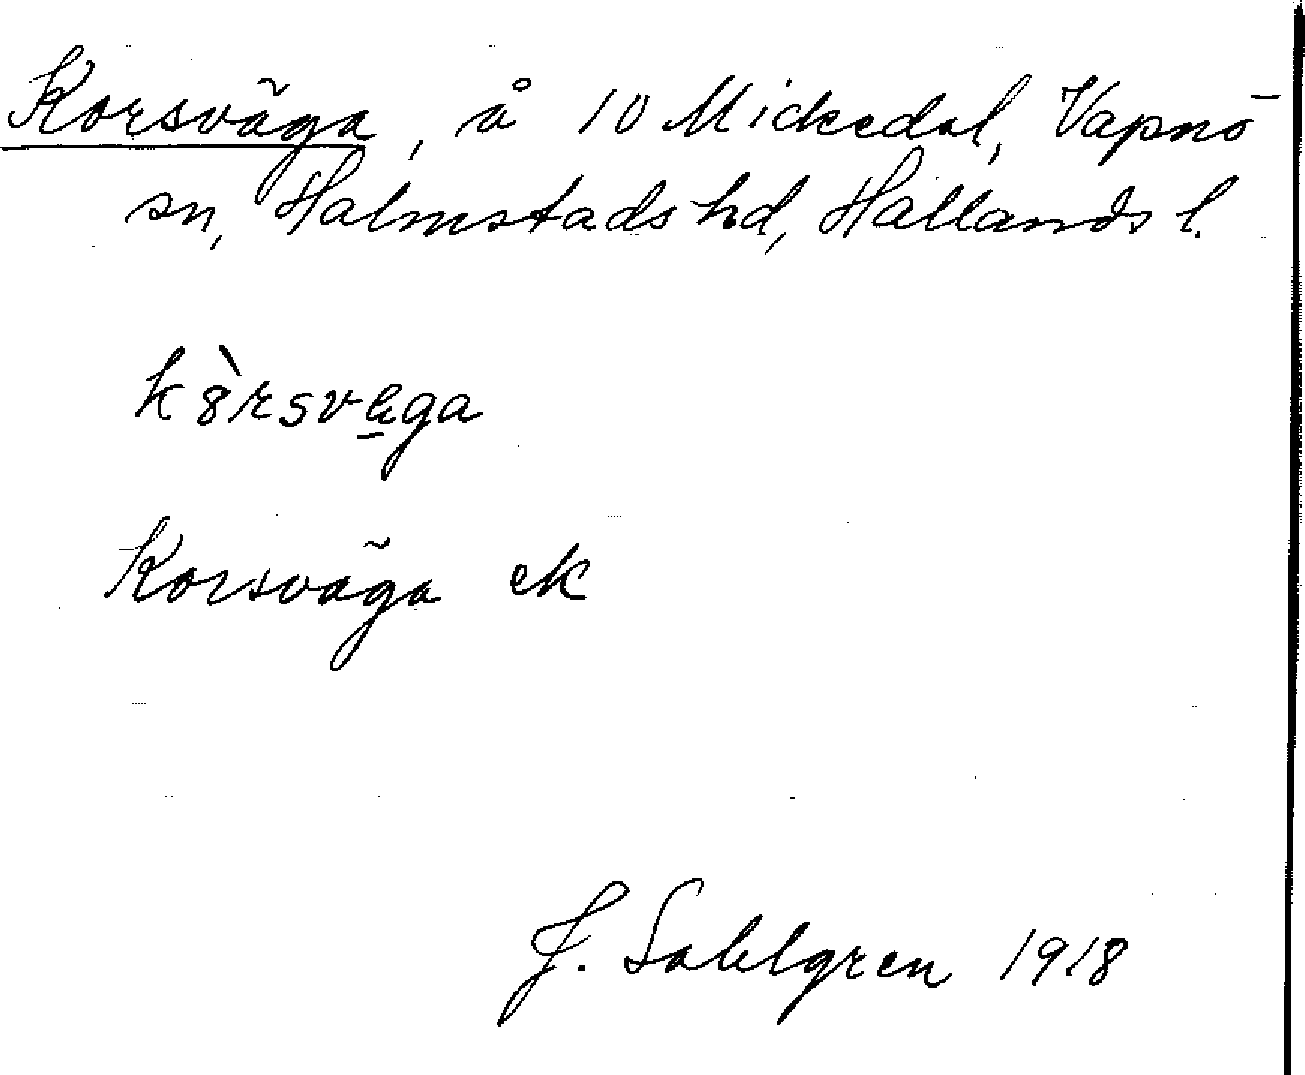 Korsväga, å 10 Mickedal, Vapnö
sn, Halmstads hd, Hallands l.
k8̀rsvega
Korsväga eK
J. Sahlgren 1918